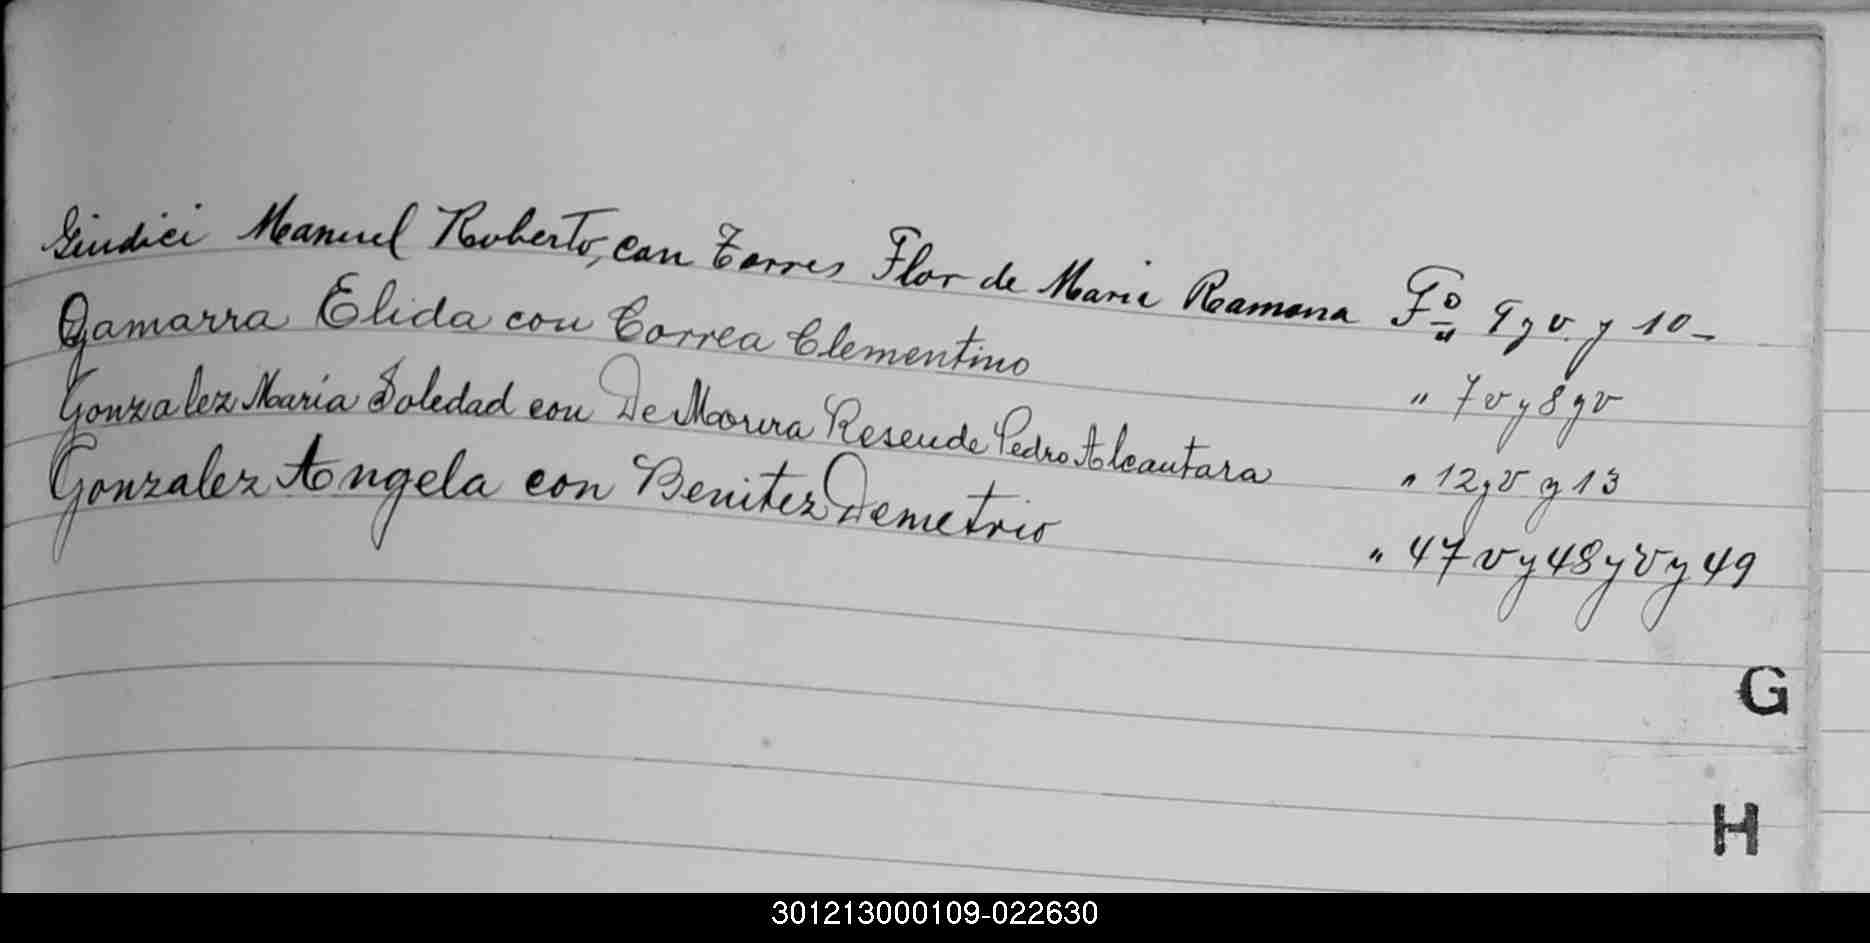 Giudici Manuel Roberto, con Torres Flor de Maria Ramona Fº 9 y v. y 10-
Gamarra Elida con Correa Clementino " 7 v y 8 y v
Gonzalez María Soledad con De Moura Resende Pedro Alcantara " 12 y v y 13
Gonzalez Angela con Benitez Demetrio " 47 v y 48 y v y 49
G
H
301213000109-022630